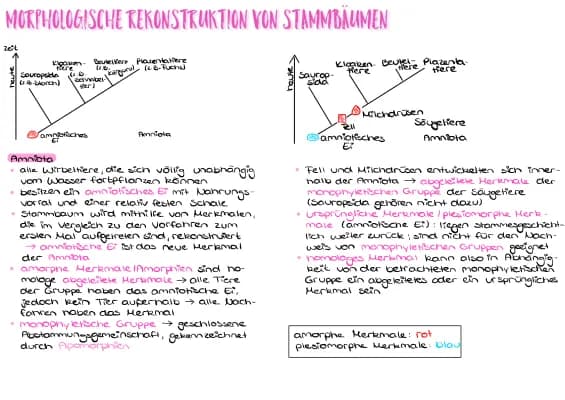 MORPHOLOGISCHE REKONSTRUKTION VON STAMMBÄUMEN
Zeit
heute
Sauropsida
(z.B. Storch)
Kloaken-
tiere
(z.B.
Schnabel-
tier)
Beuteltiere
(z.B.
Känguru)
Plazentatiere
(z.B. Fuchs)
amniotisches
Ei
Amniota
Amniota
alle Wirbeltiere, die sich völlig unabhängig
vom Wasser fortpflanzen können
besitzen ein amniotisches Ei mit Nahrungs-
vorrat und einer relativ festen Schale
Stammbaum wird mithilfe von Merkmalen,
die im Vergleich zu den Vorfahren zum
ersten Mal aufgetreten sind, rekonstruiert
→ amniotische Ei ist das neue Merkmal
der Amniota
apomorphe Merkmale/Apomorphien sind ho-
mologe abgeleitete Merkmale → alle Tiere
der Gruppe haben das amniotische Ei,
jedoch kein Tier außerhalb → alle Nach-
fahren haben das Merkmal
monophyletische Gruppe → geschlossene
Abstammungsgemeinschaft, gekennzeichnet
durch Apomorphien
heute
Saurop-
sida
Kloaken-
tiere
Beutel-
tiere
Plazenta-
tiere
Milchdrüsen
Fell
Säugetiere
amniotisches
Ei
Amniota
Fell und Milchdrüsen entwickelten sich inner-
halb der Amniota → abgeleitete Merkmale der
monophyletischen Gruppe der Säugetiere
(Sauropsida gehören nicht dazu)
ursprüngliche Merkmale/plesiomorphe Merk-
male (amniotische Ei): liegen stammesgeschicht-
lich weiter zurück; sind nicht für den Nach-
weis von monophyletischen Gruppen geeignet
homologes Merkmal kann also in Abhängig-
keit von der betrachteten monophyletischen
Gruppe ein abgeleitetes oder ein ursprüngliches
Merkmal sein
amorphe Merkmale: rot
plesiomorphe Merkmale: blau